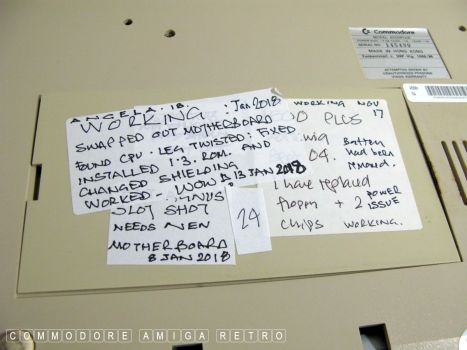 Commodore
SERIAL NO
MADE IN HONG KONG
ANGELA. 18.
WORKING : Jan 2018
SWAPPED OUT MOTHERBOARD
FOUND CPU. LEG TWISTED: FIXED
INSTALLED 1.3. ROM. AND
CHANGED SHIELDING
WORKED - WOW 13 JAN 2018
SLOT SHOT
NEEDS NEW
MOTHERBOARD
8 JAN 2018
24
WORKING NOV
17
PLCS
Battery
04. had been
removed.
I have replaced
+ 2 POWER
ISSUE
chips WORKING.
COMMODORE AMIGA RETRO